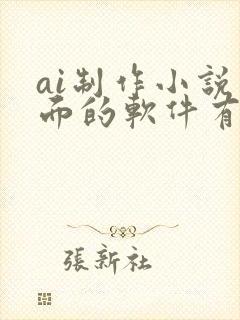 ai制作小說
而的軟件有
張新社